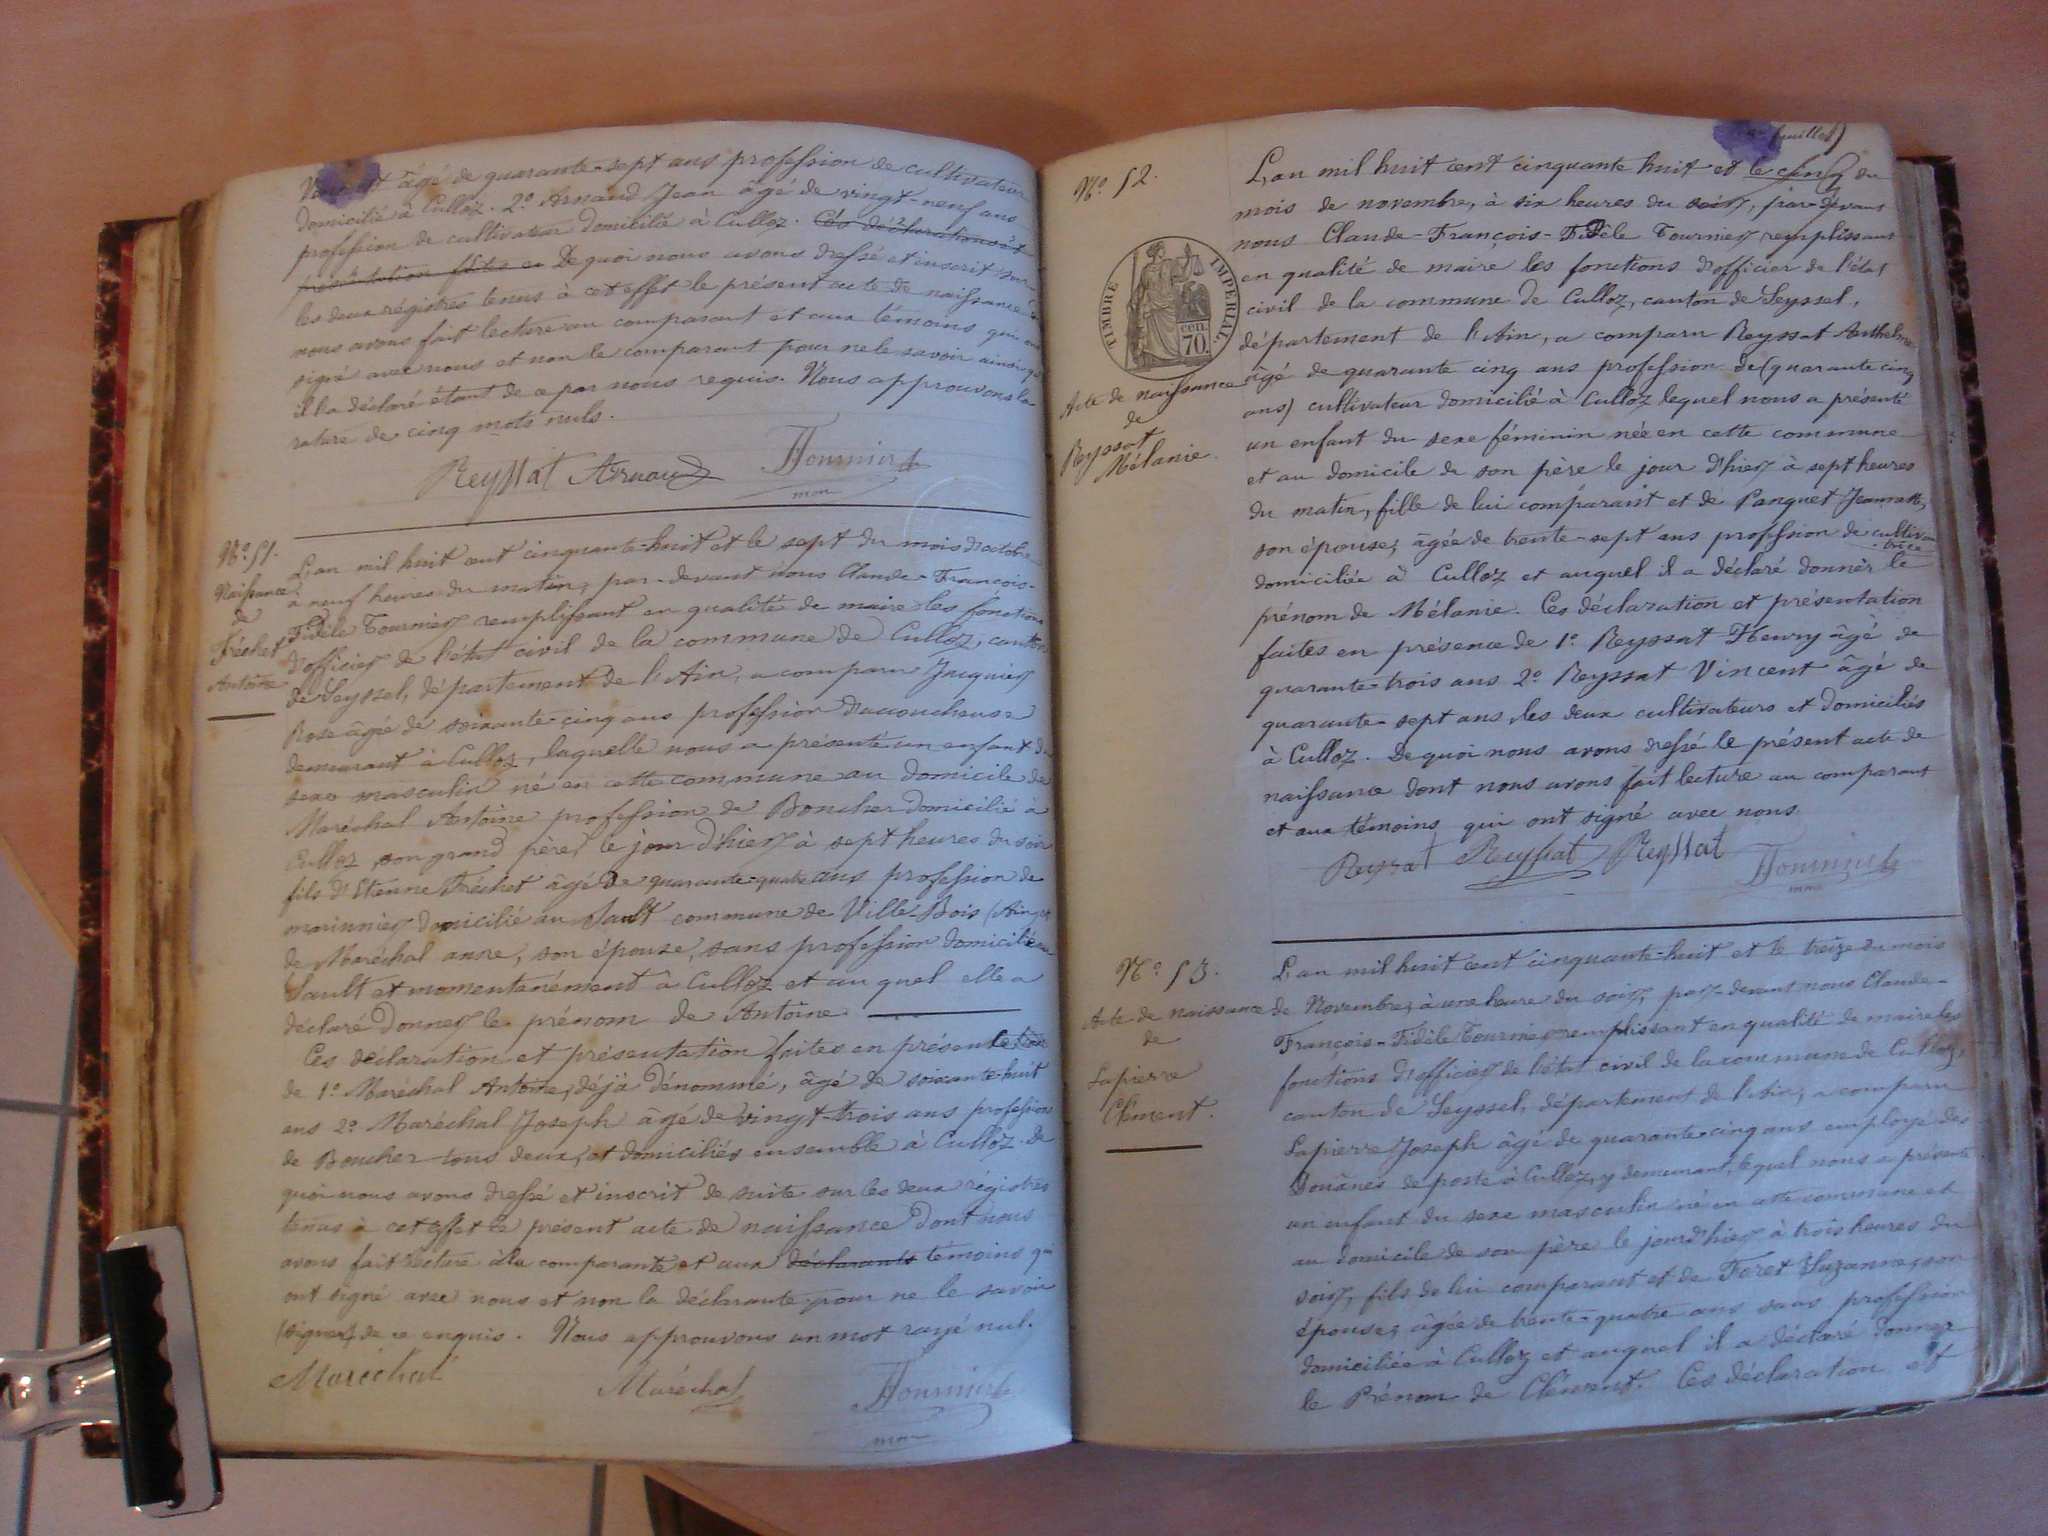 Vincent âgé de quarante-sept ans profession de cultivateur
domicilié à Culloz. 2° Arnaud Jean âgé de vingt-neuf ans
profession de cultivateur domicilié à Culloz. Ces déclaration et
présentation faites en De quoi nous avons dressé et inscrit sur
les deux régistres tenus à cet effet le présent acte de naissance
nous avons fait lecture au comparant et aux témoins qui ont
signé avec nous et non le comparant pour ne le savoir ainsi qu'
il l'a déclaré étant de ce par nous requis. Nous approuvons la
rature de cinq mots nuls.
Reyssat Arnaud Tournier
N° 51.
Naissance
de
Fréchet
Antoine
L'an mil huit cent cinquante-huit et le sept du mois d'octobre
à neuf heures du matin, par-devant nous Claude-François-
Fidèle Tournier remplissant en qualité de maire les fonctions
d'officier de l'état civil de la commune de Culloz, canton
de Seyssel, département de l'Ain, a comparu Jacquier
Rose âgée de soixante-cinq ans profession d'accoucheuse
demeurant à Culloz, laquelle nous a présenté un enfant du
sexe masculin né en cette commune au domicile de
Maréchal Antoine profession de Boucher domicilié à
Culloz son grand père, le jour d'hier à sept heures du soir
fils d'Etienne Fréchet âgé de quarante-quatre ans profession de
marinier domicilié au Sault commune de Ville-Bois (Ain) et
de Maréchal anne, son épouse, sans profession domiciliée au
Sault et momentanément à Culloz et auquel elle a
déclaré donner le prénom de Antoine
Ces déclaration et présentation faites en présence
de 1° Maréchal Antoine, déjà dénommé, âgé de soixante-huit
ans 2° Maréchal Joseph âgé de vingt-trois ans profession
de Boucher tous deux, et domiciliés ensemble à Culloz. De
quoi nous avons dressé et inscrit de suite sur les deux régistres
tenus à cet effet le présent acte de naissance dont nous
avons fait lecture à la comparante et aux déclarants témoins qui
ont signé avec nous et non la déclarante pour ne le savoir
(signer) de ce enquis. Nous approuvons un mot rayé nul.
Maréchal Maréchal Tournier
N° 52.
TIMBRE IMPERIAL
cen.
70.
Acte de naissance
de
Reyssat
Mélanie.
feuillet)
L'an mil huit cent cinquante huit et le cinq du
mois de novembre, à six heures du soir, par-devant
nous Claude-François-Fidèle Tournier remplissant
en qualité de maire les fonctions d'officier de l'état
civil de la commune de Culloz, canton de Seyssel,
département de l'Ain, a comparu Reyssat Anthelme
âgé de quarante cinq ans profession de (quarante cinq
ans) cultivateur domicilié à Culloz lequel nous a présenté
un enfant du sexe féminin née en cette commune
et au domicile de son père le jour d'hier à sept heures
du matin, fille de lui comparant et de Panguet Jeannette,
son épouse, âgée de trente-sept ans profession de cultiva-
trice
domiciliée à Culloz et auquel il a déclaré donner le
prénom de Mélanie. Ces déclaration et présentation
faites en présence de 1° Reyssat Henry âgé de
quarante-trois ans 2° Reyssat Vincent âgé de
quarante-sept ans, les deux cultivateurs et domiciliés
à Culloz. De quoi nous avons dressé le présent acte de
naissance dont nous avons fait lecture au comparant
et aux témoins qui ont signé avec nous.
Reyssat Reyssat Reyssat Tournier
N° 53.
Acte de naissance
de
Lapierre
Clément.
L'an mil huit cent cinquante-huit et le treize du mois
de Novembre, à une heure du soir, par-devant nous Claude-
François-Fidèle Tournier remplissant en qualité de maire les
fonctions d'officier de l'état civil de la commune de Culloz,
canton de Seyssel, département de l'Ain, a comparu
Lapierre Joseph âgé de quarante-cinq ans employé des
Douânes de poste à Culloz, y demeurant, lequel nous a présenté
un enfant du sexe masculin né en cette commune et
au domicile de son père le jour d'hier à trois heures du
soir, fils de lui comparant et de Foret Suzanne, son
épouse, âgée de trente-quatre ans sans profession
domiciliée à Culloz et auquel il a déclaré donner
le Prénom de Clément. Ces déclaration et